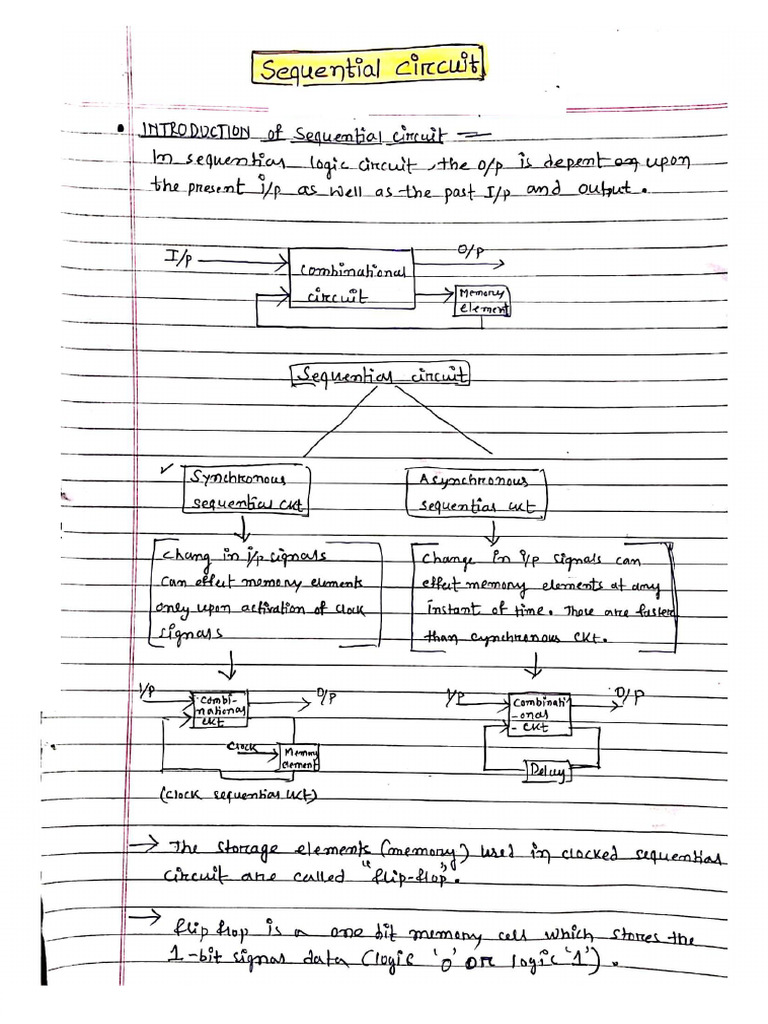 Sequential circuit
• INTRODUCTION of Sequential circuit —
In sequential logic circuit, the o/p is depent on upon
the present i/p as well as the past I/p and output.
I/p
O/p
Combinational
circuit
Memory
element
Sequential circuit
✓ Synchronous
sequential ckt
Asynchronous
sequential ckt
Chang in i/p signals
can effect memory elements
only upon activation of clock
signals
Change in i/p signals can
effect memory elements at any
instant of time. These are faster
than cynchronous ckt.
I/p
Combi-
national
ckt
O/p
Clock
Memory
element
(clock sequential ckt)
I/p
Combinati
-onal
- ckt
O/p
Delay
→ The storage elements (memory) used in clocked sequential
circuit are called "flip-flop".
→ flip flop is a one bit memory cell which stores the
1-bit signal data (logic '0' or logic '1').